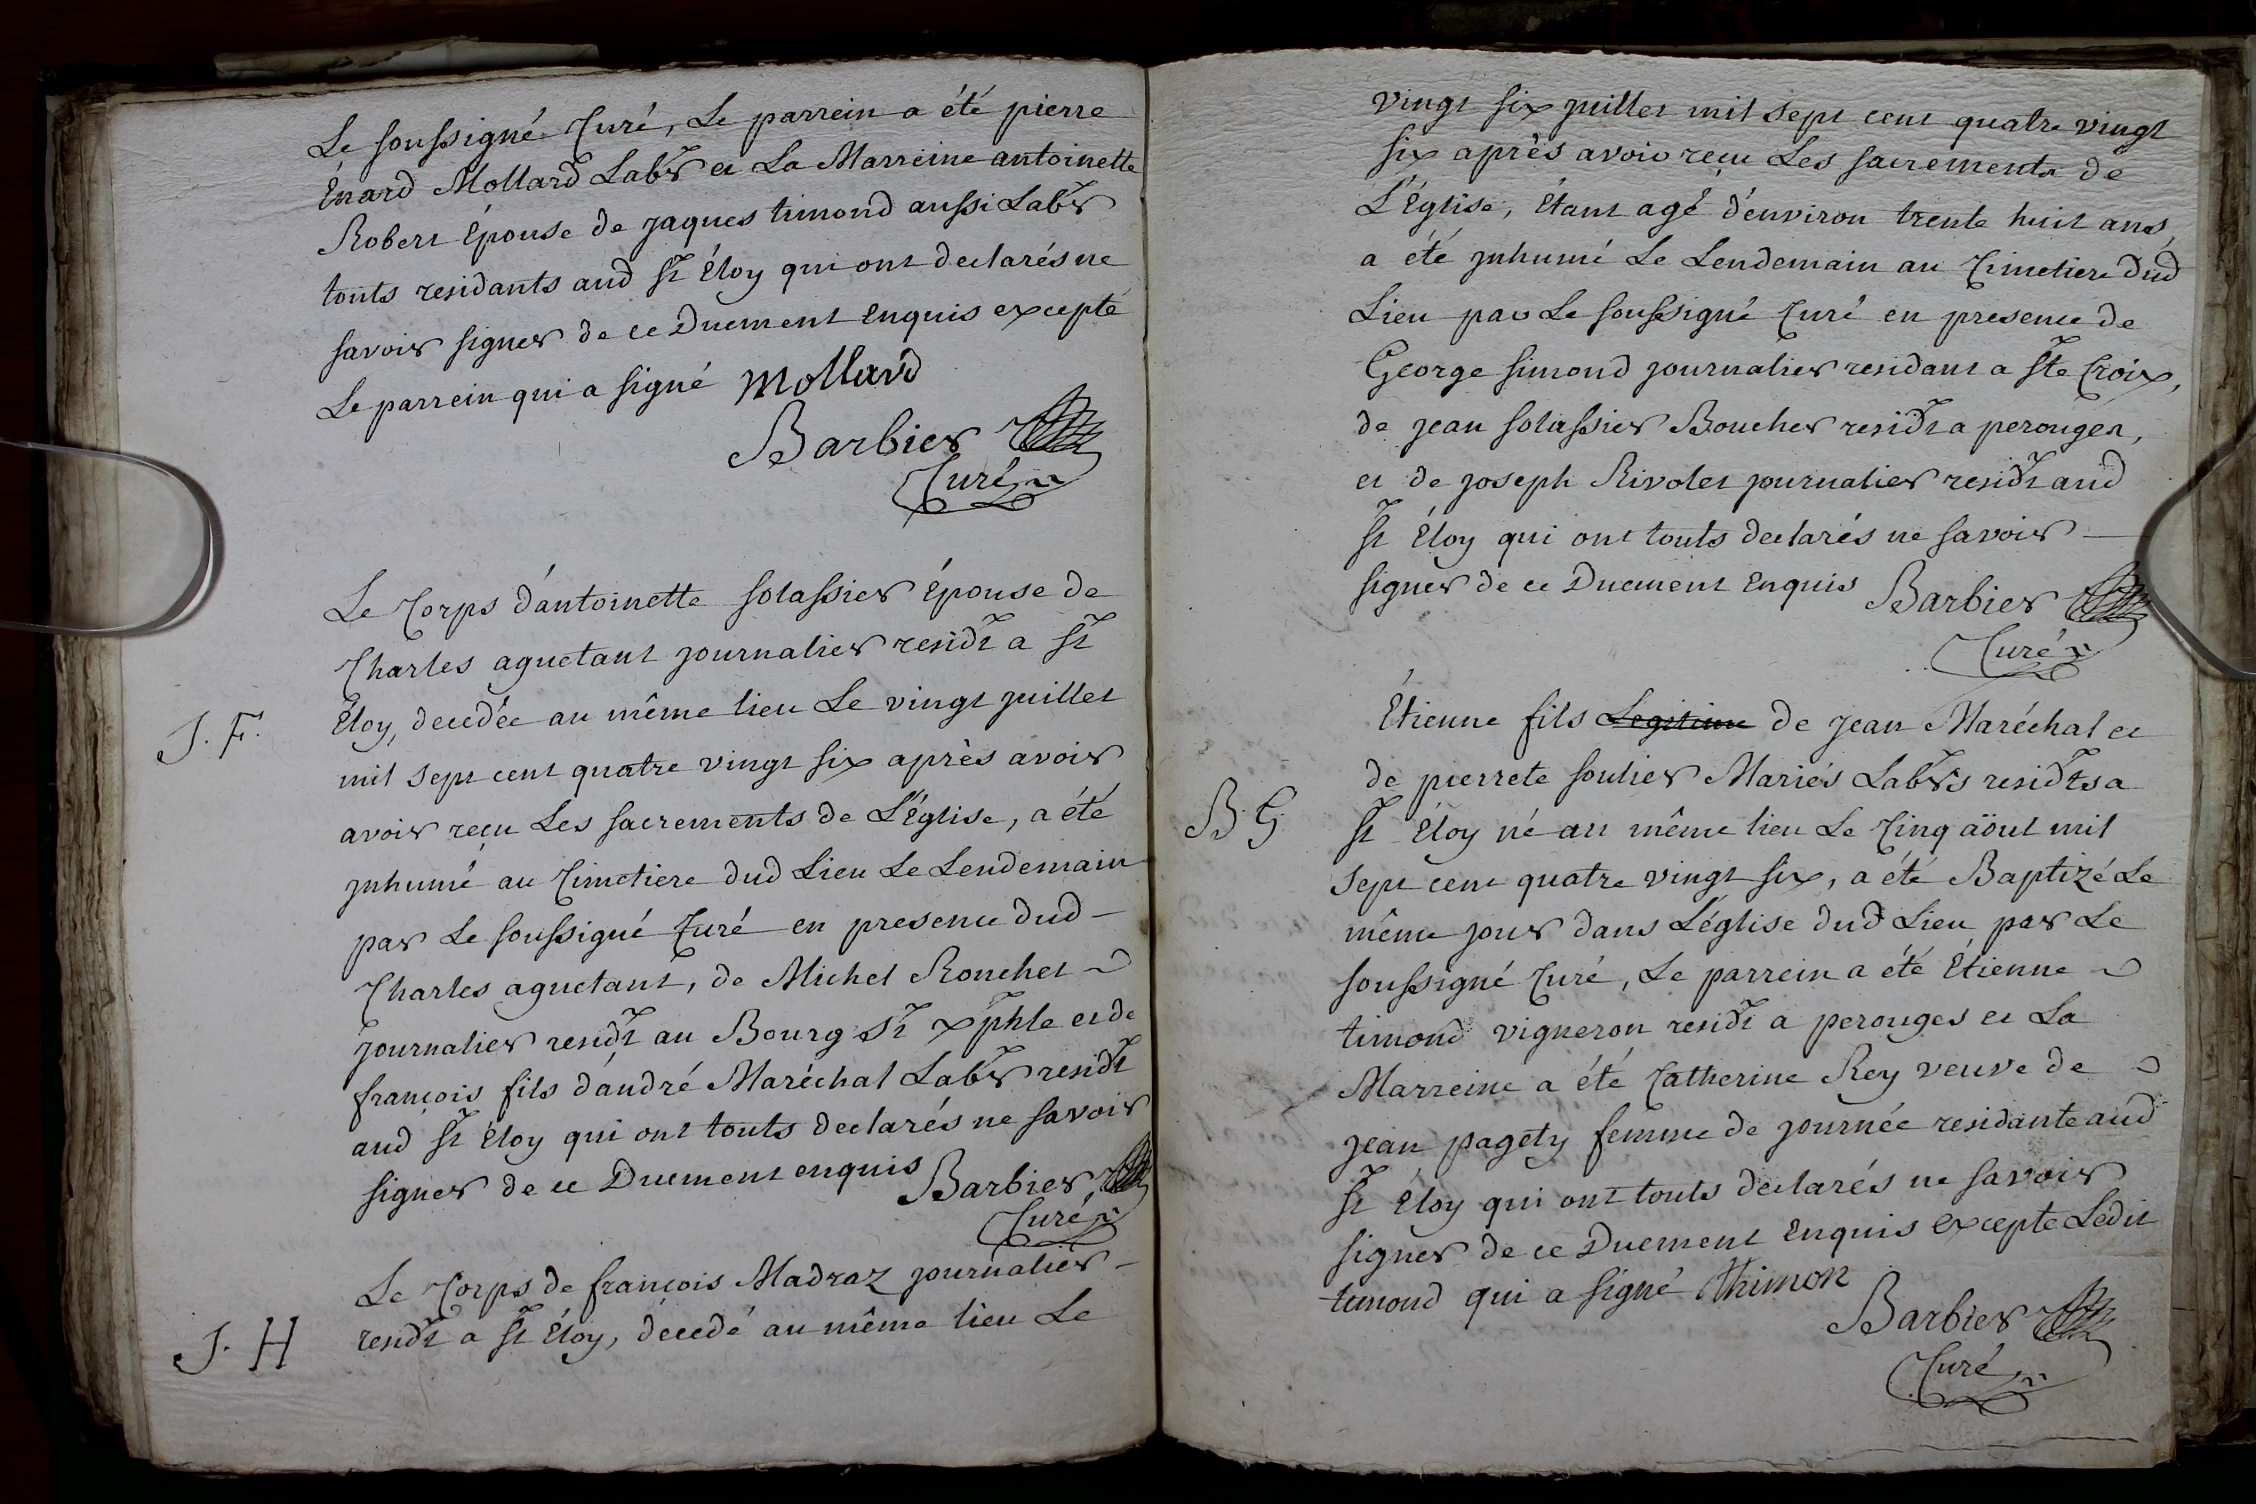 Le soussigné Curé, Le parrein a été pierre
Énard Mollard Labr et La Marreine antoinette
Robert Épouse de jaques timond aussi Labr
touts residants aud St Éloy qui ont declarés ne
savoir signer de ce Duement Enquis excepté
Le parrein qui a signé Mollard
Barbier
Curé
Le Corps d'antoinette solassier Épouse de
Charles aguetant journalier residt a St
J. F. Éloy, decedée au même lieu Le vingt juillet
mil sept cent quatre vingt six après avoir
avoir reçu Les sacrements de L'Église, a été
inhumé au Cimetiere dud Lieu Le Lendemain
par Le soussigné Curé en presence dud
Charles aguetant, de Michel Ronchet
journalier residt au Bourg St xphle et de
françois fils d'andré Maréchal Labr residt
aud St Éloy qui ont touts declarés ne savoir
signer de ce Duement enquis Barbier
Curé
Le Corps de françois Madraz journalier
J. H residt a St Éloy, décedé au même lieu Le
vingt six juillet mil sept cent quatre vingt
six après avoir reçu Les sacrements de
L'Église, Étant agé d'environ trente huit ans,
a été inhumé Le Lendemain au Cimetiere dud
Lieu par Le soussigné Curé en presence de
George simond journalier residant a Ste Croix,
de jean solassier Boucher residt a perouges,
et de joseph Rivolet journalier residt aud
St Éloy qui ont touts declarés ne savoir
signer de ce Duement Enquis Barbier
Curé
Étienne fils Legitime de jean Maréchal et
de pierrete soulier Mariés Labrs residts a
B. G. St Éloy né au même lieu Le Cinq août mil
sept cent quatre vingt six, a été Baptizé Le
même jour dans L'église dud Lieu par Le
soussigné Curé, Le parrein a été Étienne
timond vigneron residt a perouges et La
Marreine a été Catherine Rey veuve de
jean pagety femme de journée residante aud
St Éloy qui ont touts declarés ne savoir
signer de ce Duement Enquis Excepte Ledit
timond qui a signé Thimon
Barbier
Curé